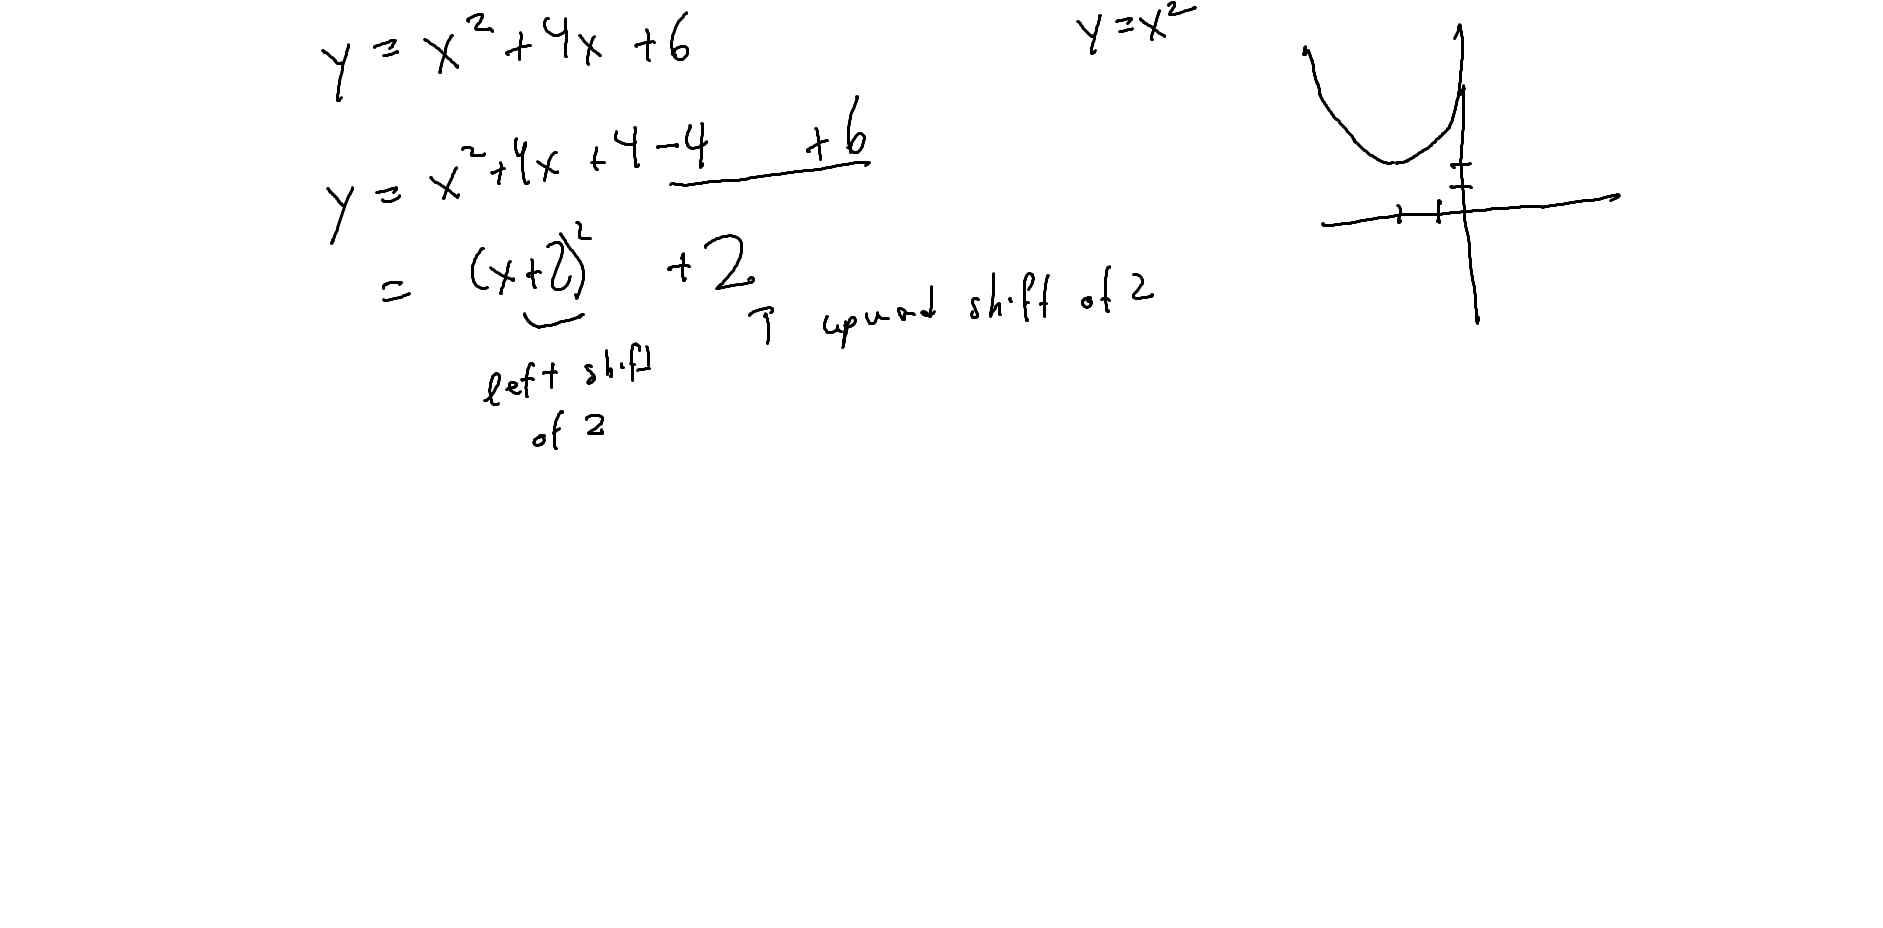 y = x² + 4x + 6
y = x²
y = x² + 4x + 4 - 4 + 6
= (x+2)² + 2
↑ upward shift of 2
left shift
of 2